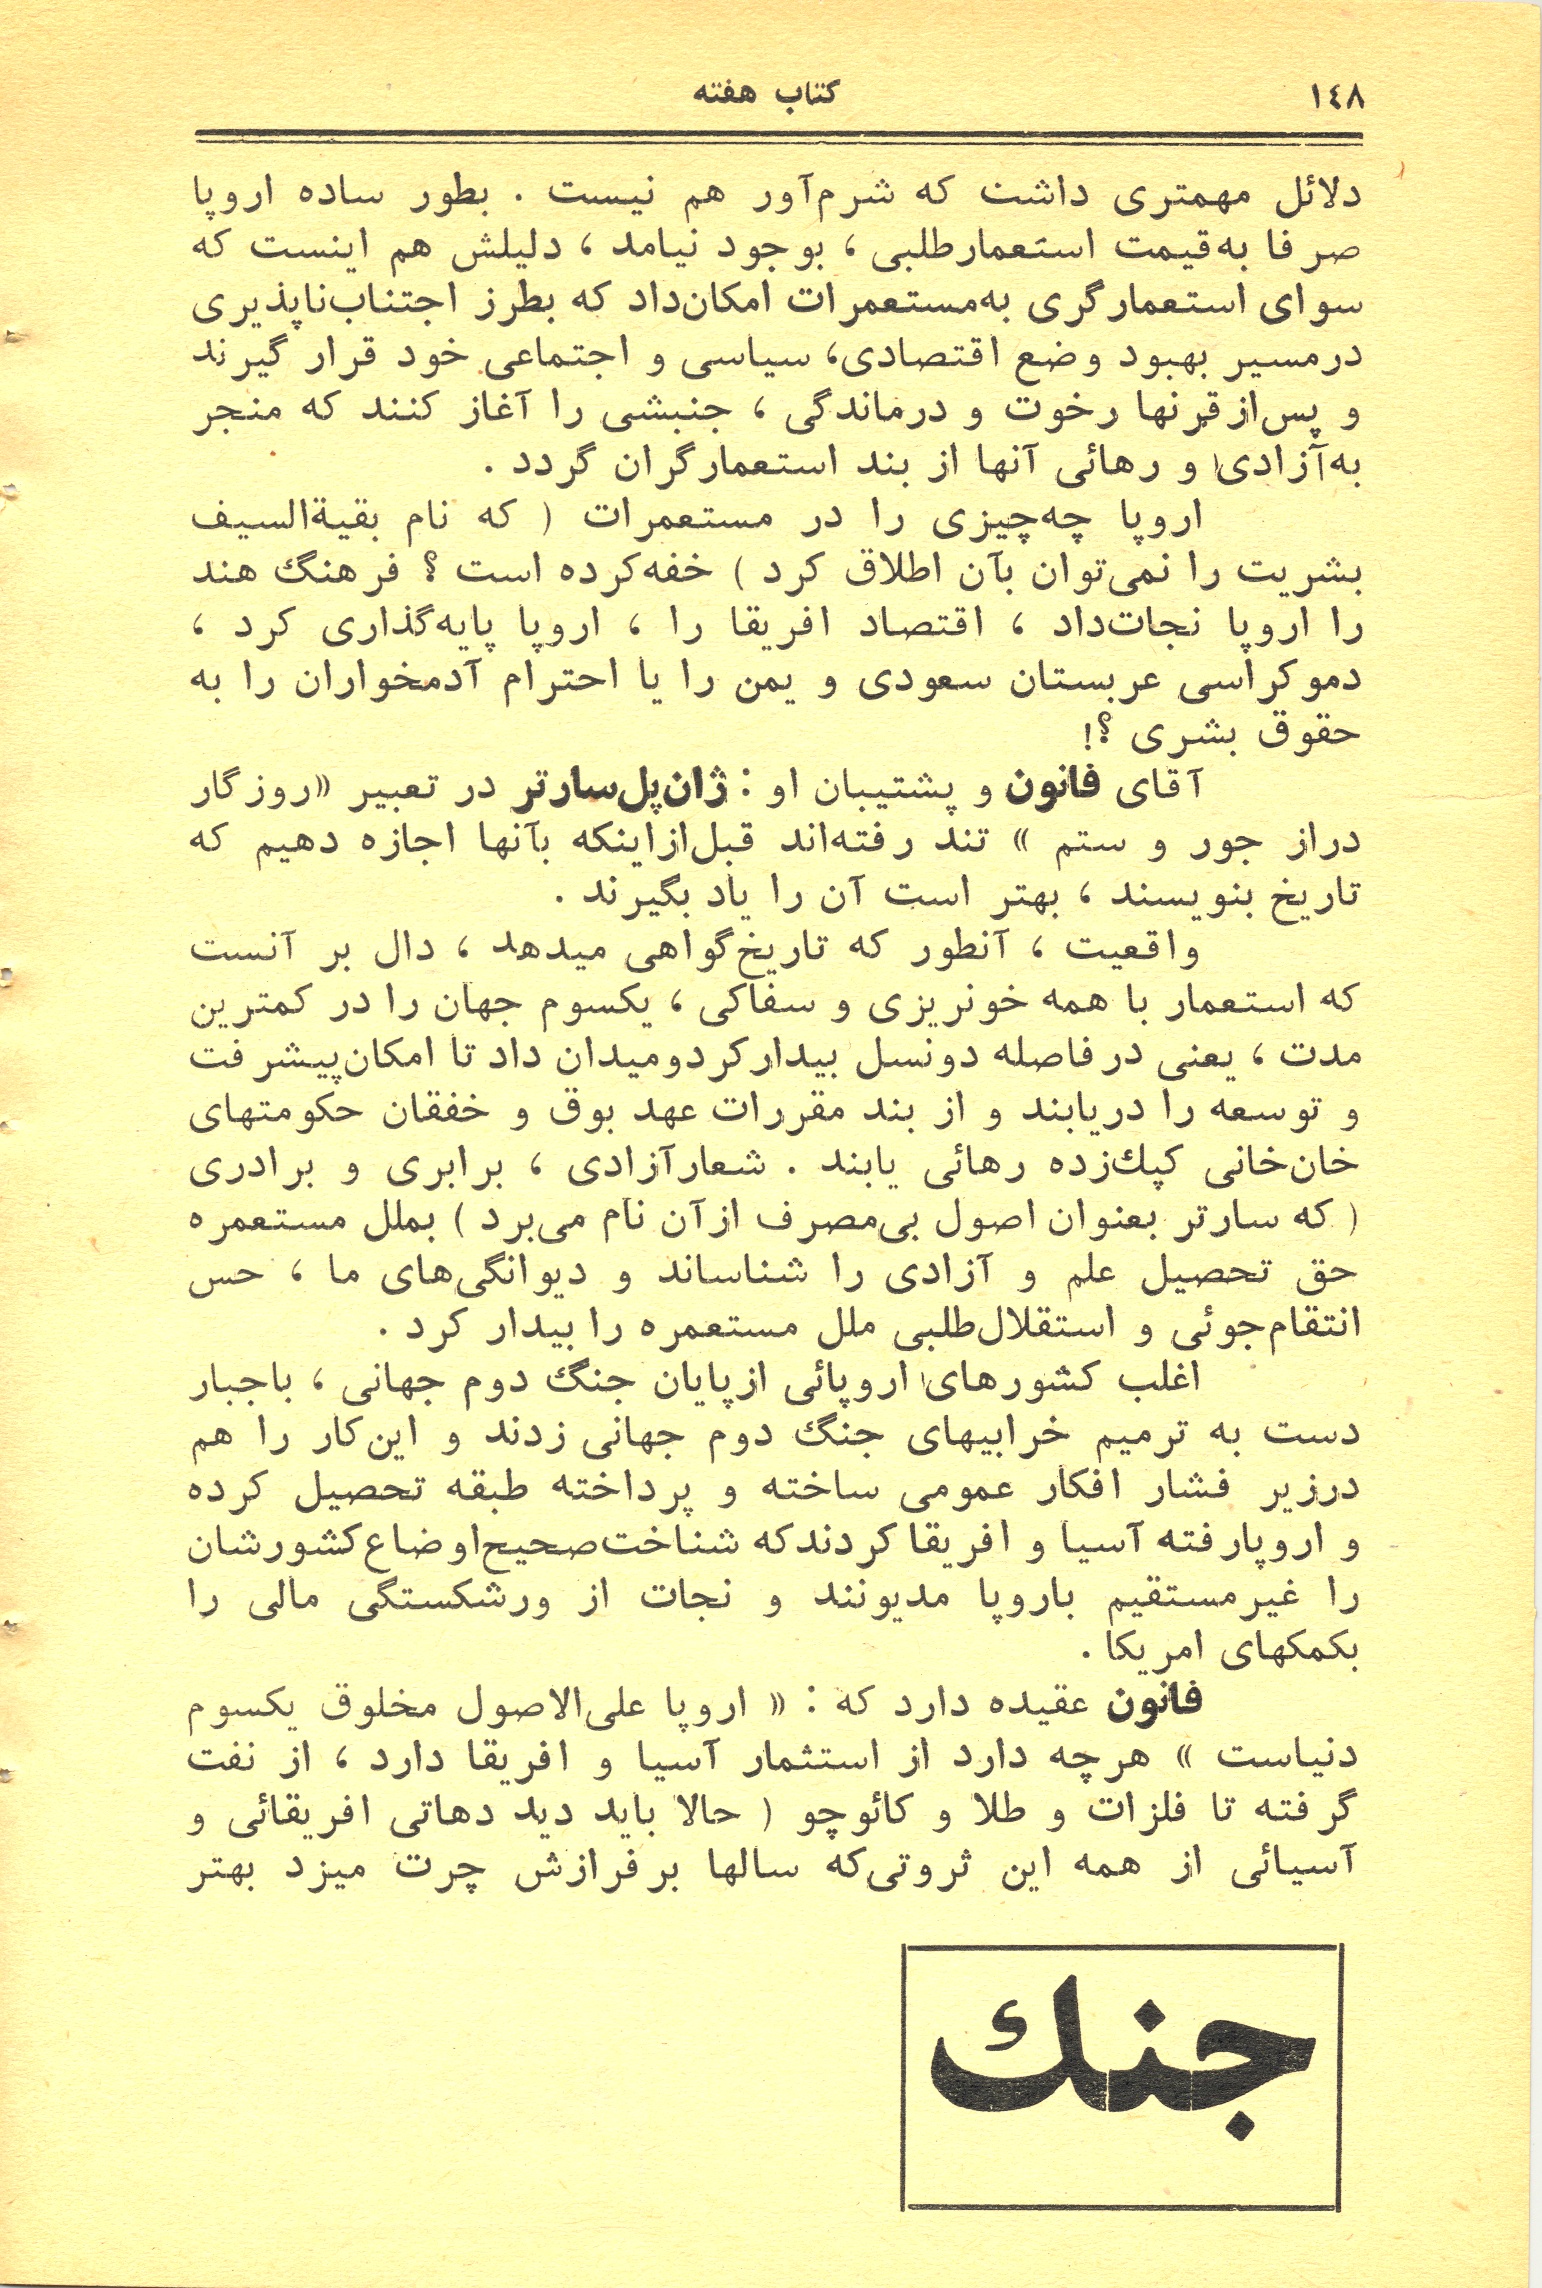 ١٤٨
کتاب هفته
دلائل مهمتری داشت که شرم‌آور هم نیست . بطور ساده اروپا
صرفا به‌قیمت استعمارطلبی ، بوجود نیامد ، دلیلش هم اینست که
سوای استعمارگری به‌مستعمرات امکان‌داد که بطرز اجتناب‌ناپذیری
درمسیر بهبود وضع اقتصادی، سیاسی و اجتماعی خود قرار گیرند
و پس‌ازقرنها رخوت و درماندگی ، جنبشی را آغاز کنند که منجر
به‌آزادی و رهائی آنها از بند استعمارگران گردد .
اروپا چه‌چیزی را در مستعمرات ( که نام بقیةالسیف
بشریت را نمی‌توان بآن اطلاق کرد ) خفه‌کرده است ؟ فرهنگ هند
را اروپا نجات‌داد ، اقتصاد افریقا را ، اروپا پایه‌گذاری کرد ،
دموکراسی عربستان سعودی و یمن را یا احترام آدمخواران را به
حقوق بشری ؟!
آقای فانون و پشتیبان او : ژان‌پل‌سارتر در تعبیر «روزگار
دراز جور و ستم » تند رفته‌اند قبل‌ازاینکه بآنها اجازه دهیم که
تاریخ بنویسند ، بهتر است آن را یاد بگیرند .
واقعیت ، آنطور که تاریخ‌گواهی میدهد ، دال بر آنست
که استعمار با همه خونریزی و سفاکی ، یکسوم جهان را در کمترین
مدت ، یعنی درفاصله دونسل بیدارکردومیدان داد تا امکان‌پیشرفت
و توسعه را دریابند و از بند مقررات عهد بوق و خفقان حکومتهای
خان‌خانی کپك‌زده رهائی یابند . شعارآزادی ، برابری و برادری
( که سارتر بعنوان اصول بی‌مصرف ازآن نام می‌برد ) بملل مستعمره
حق تحصیل علم و آزادی را شناساند و دیوانگی‌های ما ، حس
انتقام‌جوئی و استقلال‌طلبی ملل مستعمره را بیدار کرد .
اغلب کشورهای اروپائی ازپایان جنگ دوم جهانی ، باجبار
دست به ترمیم خرابیهای جنگ دوم جهانی زدند و این‌کار را هم
درزیر فشار افکار عمومی ساخته و پرداخته طبقه تحصیل کرده
و اروپارفته آسیا و افریقا کردندکه شناخت‌صحیح‌اوضاع‌کشورشان
را غیرمستقیم باروپا مدیونند و نجات از ورشکستگی مالی را
بکمکهای امریکا .
فانون عقیده دارد که : « اروپا علی‌الاصول مخلوق یکسوم
دنیاست » هرچه دارد از استثمار آسیا و افریقا دارد ، از نفت
گرفته تا فلزات و طلا و کائوچو ( حالا باید دید دهاتی افریقائی و
آسیائی از همه این ثروتی‌که سالها برفرازش چرت میزد بهتر
جنك